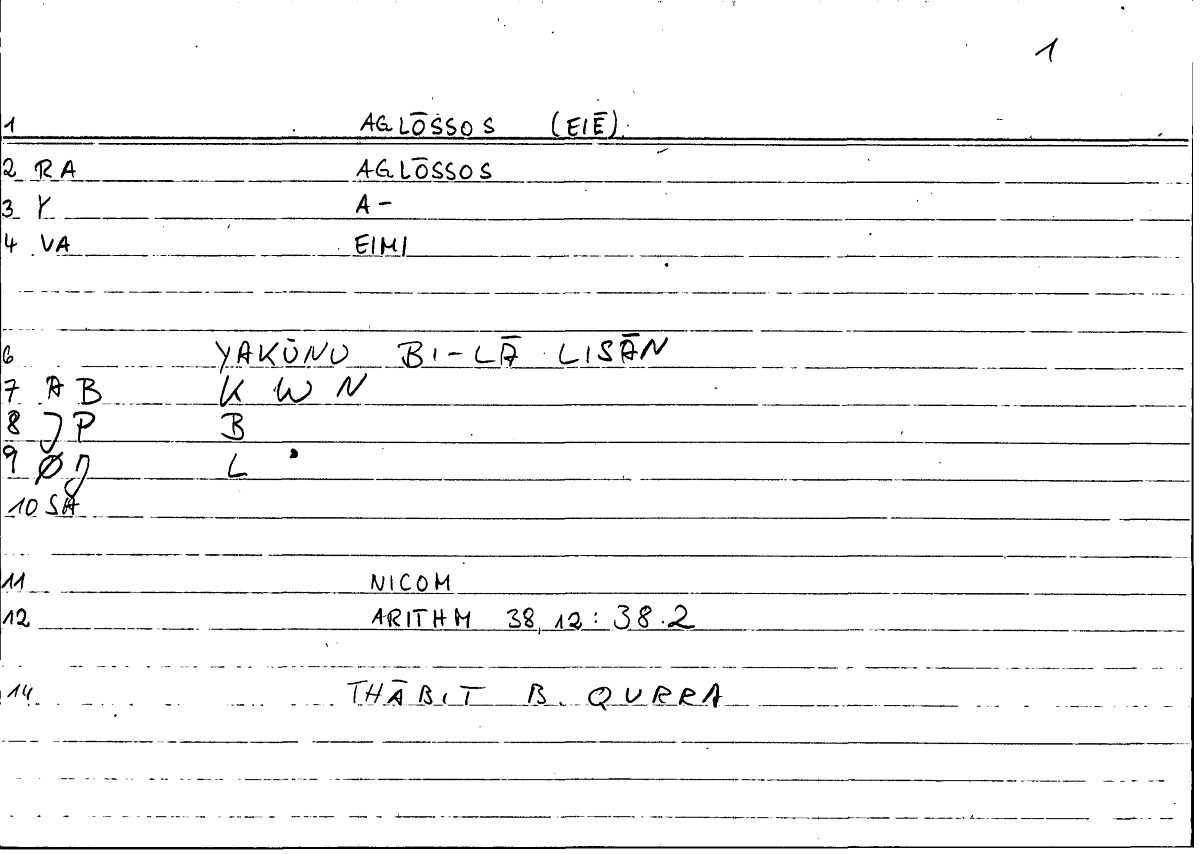 1
1 AGLŌSSOS (EIĒ).
2 RA AGLŌSSOS
3 Y A-
4 VA EIMI
6 YAKŪNU BI-LĀ LISĀN
7 AB K W N
8 JP B
9 ØJ L
10 SA
11 NICOM
12 ARITHM 38,12:38.2
14 THĀBIT B. QURRA